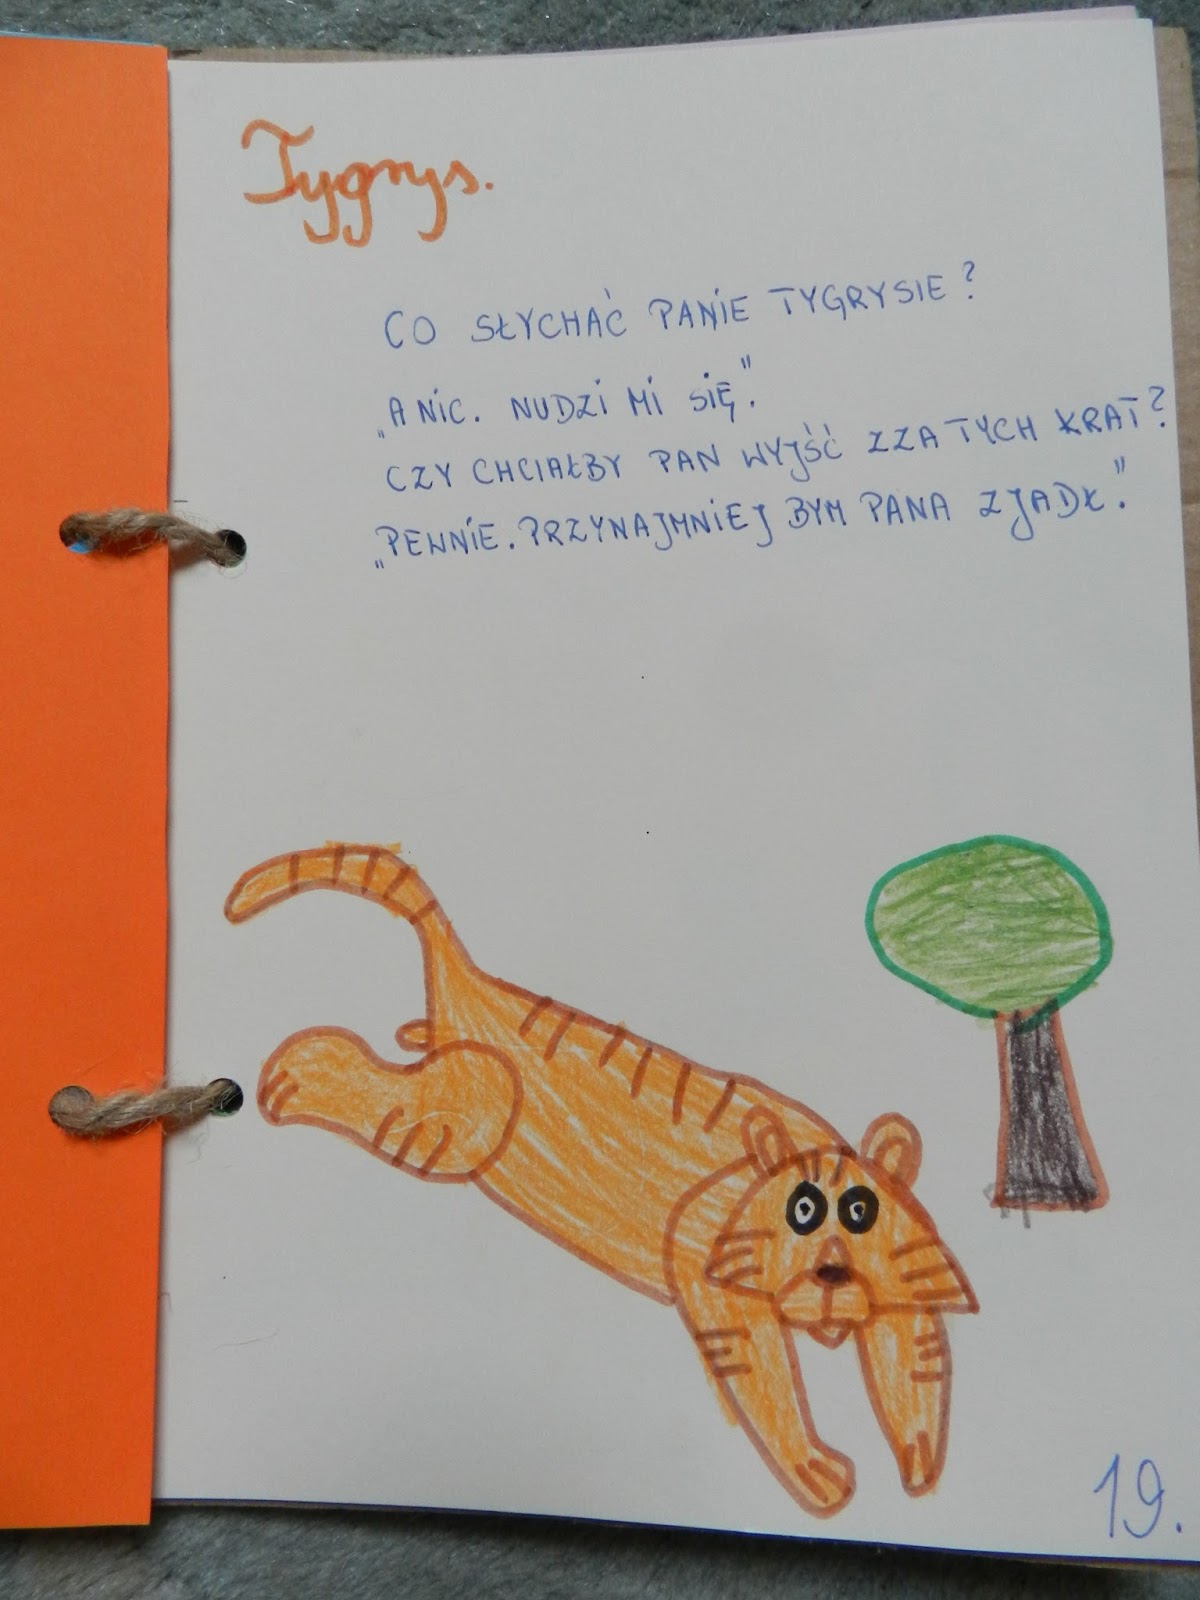 Tygrys.
CO SŁYCHAĆ PANIE TYGRYSIE?
„A NIC. NUDZI MI SIĘ".
CZY CHCIAŁBY PAN WYJŚĆ ZZA TYCH KRAT?
„PEWNIE. PRZYNAJMNIEJ BYM PANA ZJADŁ."
19.